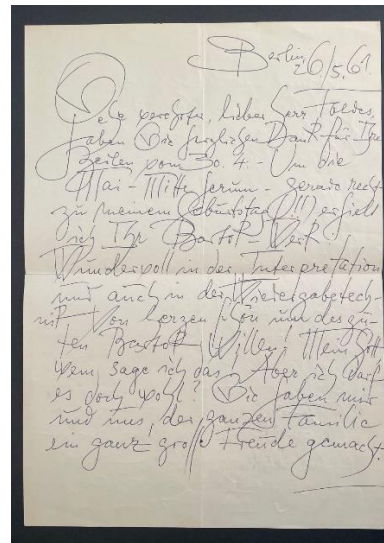 Berlin, 26/5.61.
Sehr verehrter, lieber Herr Foldes,
haben Sie herzlichen Dank für Ihre
Zeilen vom 30.4. - Um die
Mai-Mitte herum - gerade recht
zu meinem Geburtstag (!!!) erhielt
ich Ihr Bartók-Werk.
Wundervoll in der Interpretation
und auch in der Wiedergabetech-
nik. Von Herzen schon um des gu-
ten Bartók Willen. Mein Gott
wem sage ich das. Aber ich darf
es doch wohl? Sie haben mir
und uns, der ganzen Familie
ein ganz große Freude gemacht.